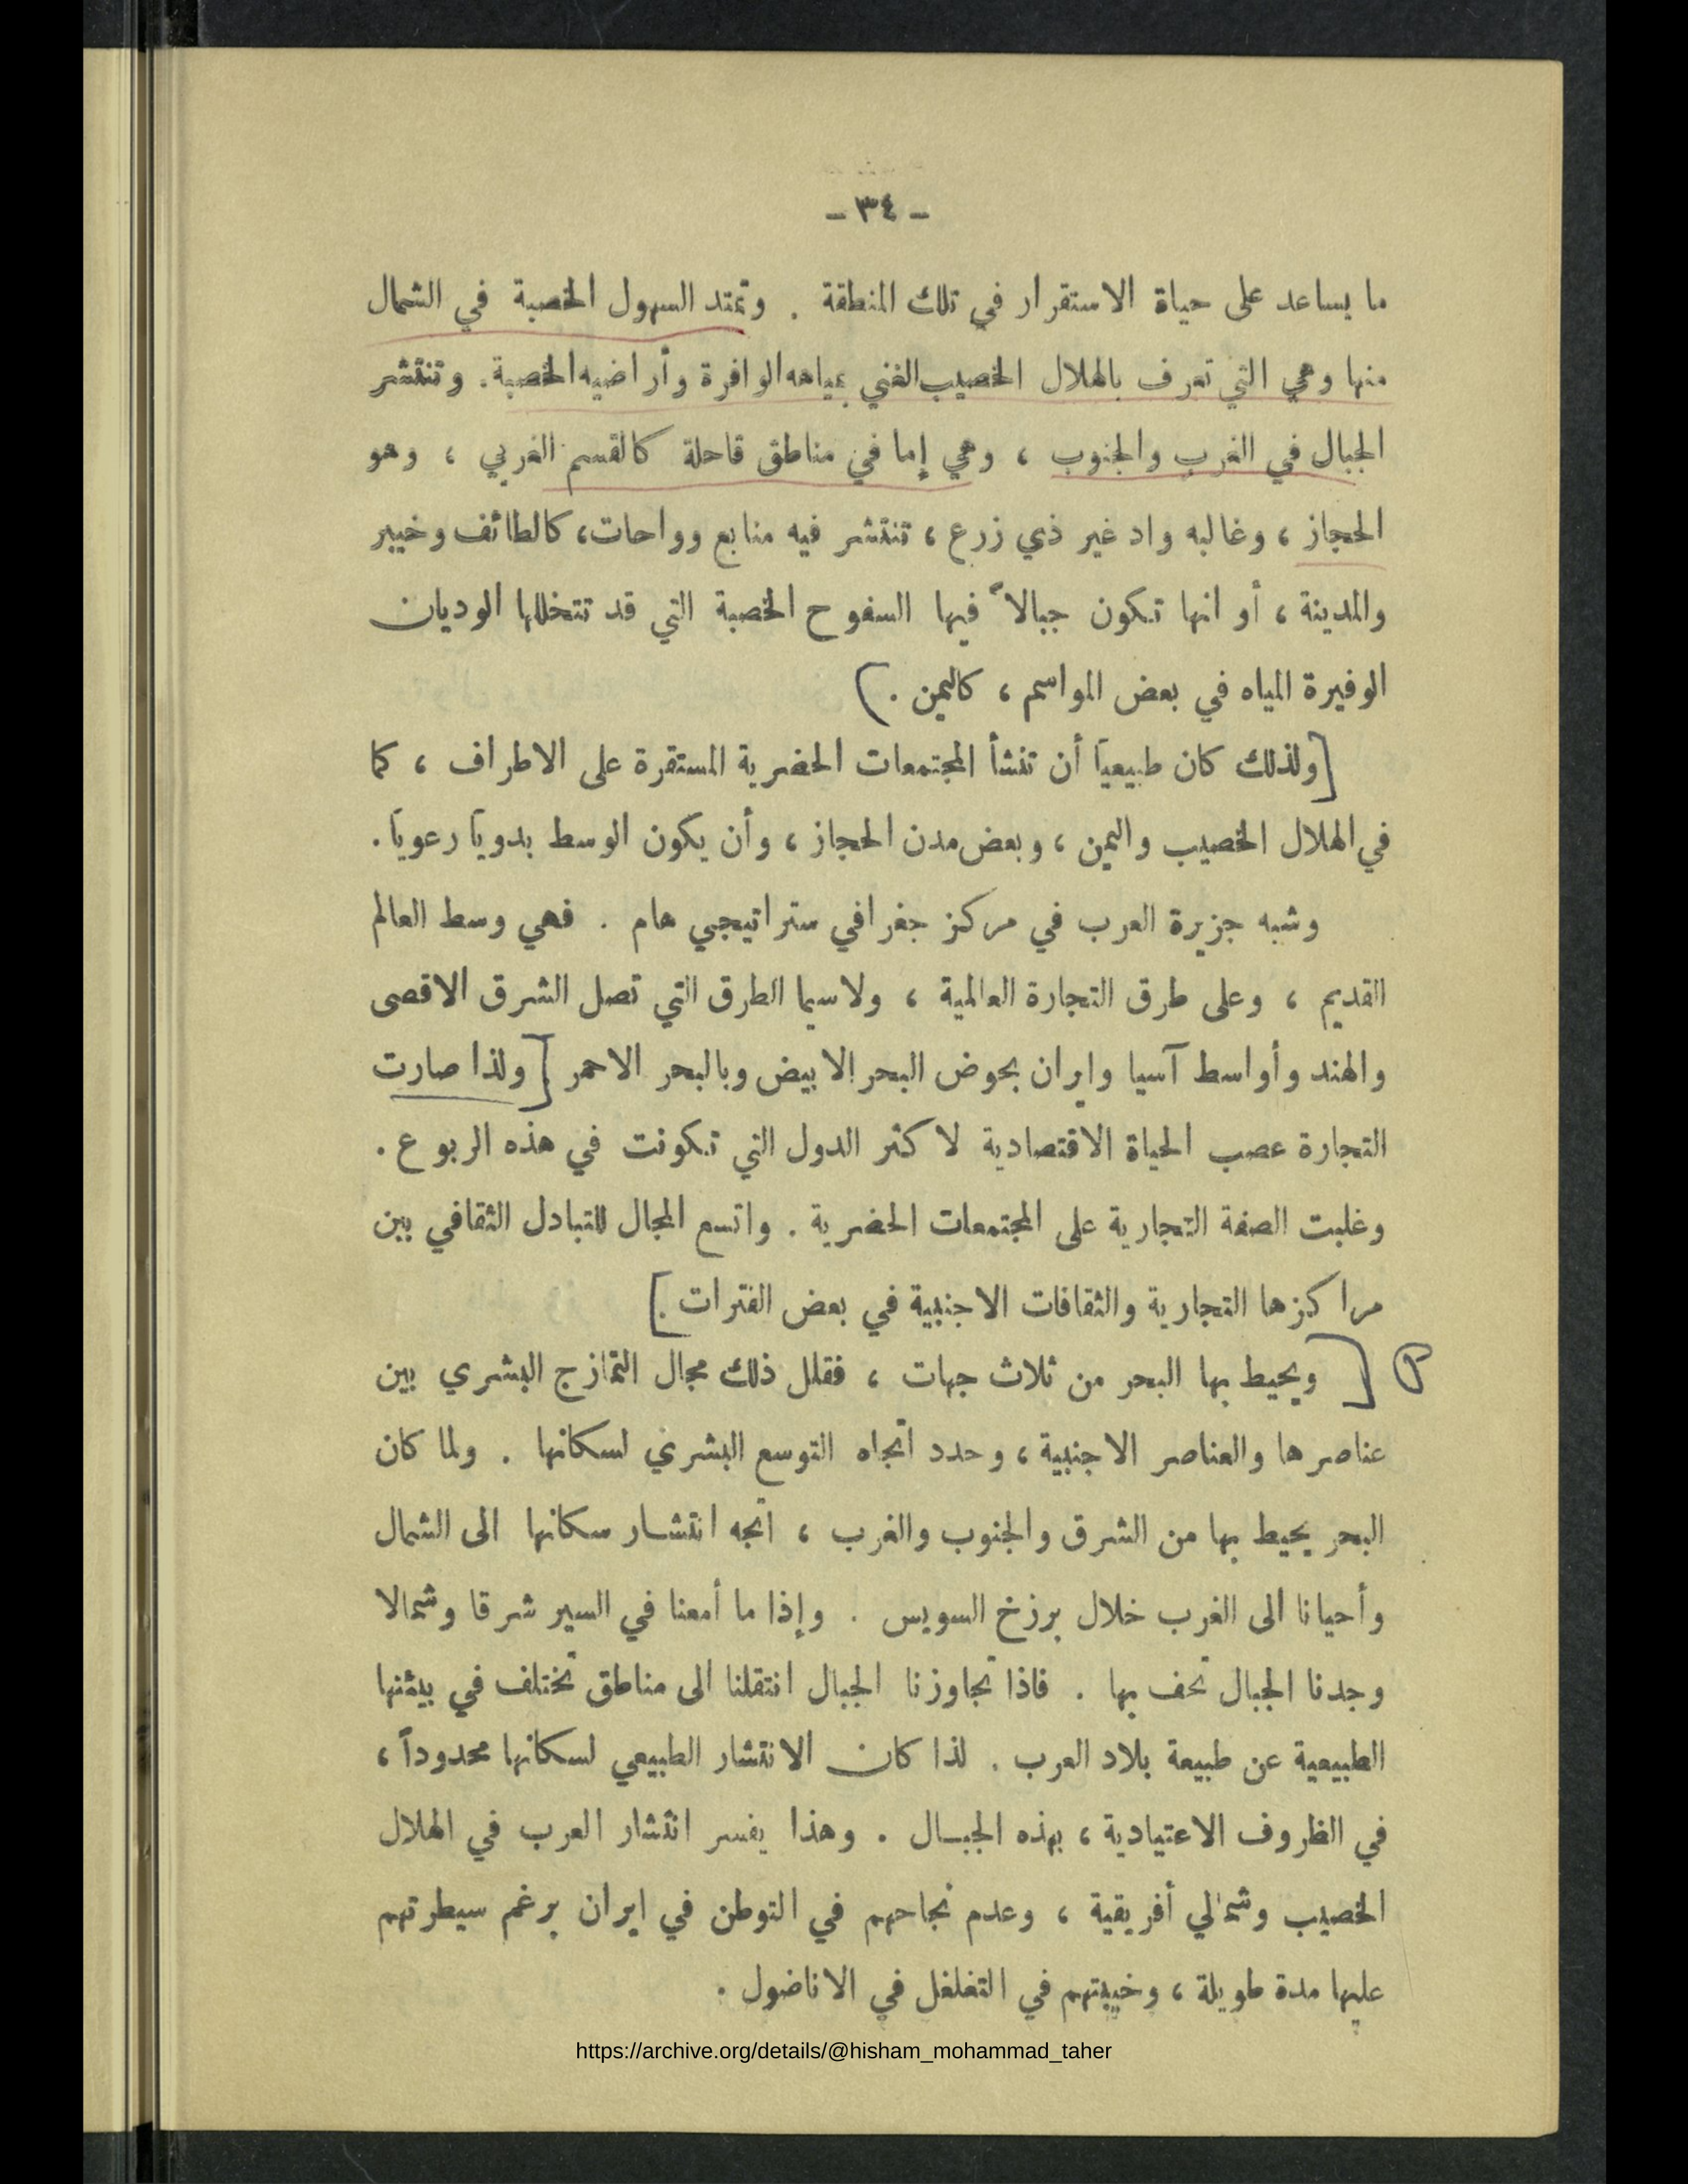 - ٣٤ -
ما يساعد على حياة الاستقرار في تلك المنطقة . وتمتد السهول الخصبة في الشمال
منها وهي التي تعرف بالهلال الخصيب الغني بمياهه الوافرة وأراضيه الخصبة . وتنتشر
الجبال في الغرب والجنوب ، وهي إما في مناطق قاحلة كالقسم الغربي ، وهو
الحجاز ، وغالبه واد غير ذي زرع ، تنتشر فيه منابع وواحات ، كالطائف وخيبر
والمدينة ، أو انها تكون جبالاً فيها السفوح الخصبة التي قد تتخللها الوديان
الوفيرة المياه في بعض المواسم ، كاليمن . )
[ ولذلك كان طبيعياً أن تنشأ المجتمعات الحضرية المستقرة على الاطراف ، كما
في الهلال الخصيب واليمن ، وبعض مدن الحجاز ، وأن يكون الوسط بدوياً رعوياً .
وشبه جزيرة العرب في مركز جغرافي ستراتيجي هام . فهي وسط العالم
القديم ، وعلى طرق التجارة العالمية ، ولاسيما الطرق التي تصل الشرق الاقصى
والهند وأواسط آسيا وايران بحوض البحر الابيض وبالبحر الاحمر [ ولذا صارت
التجارة عصب الحياة الاقتصادية لاكثر الدول التي تكونت في هذه الربوع .
وغلبت الصفة التجارية على المجتمعات الحضرية . واتسع المجال للتبادل الثقافي بين
مراكزها التجارية والثقافات الاجنبية في بعض الفترات . ]
[ ويحيط بها البحر من ثلاث جهات ، فقلل ذلك مجال التمازج البشري بين
عناصرها والعناصر الاجنبية ، وحدد اتجاه التوسع البشري لسكانها . ولما كان
البحر يحيط بها من الشرق والجنوب والغرب ، اتجه انتشار سكانها الى الشمال
وأحيانا الى الغرب خلال برزخ السويس . وإذا ما أمعنا في السير شرقا وشمالا
وجدنا الجبال تحف بها . فاذا تجاوزنا الجبال انتقلنا الى مناطق تختلف في بيئتها
الطبيعية عن طبيعة بلاد العرب . لذا كان الانتشار الطبيعي لسكانها محدوداً ،
في الظروف الاعتيادية ، بهذه الجبال . وهذا يفسر انتشار العرب في الهلال
الخصيب وشمالي أفريقية ، وعدم نجاحهم في التوطن في ايران برغم سيطرتهم
عليها مدة طويلة ، وخيبتهم في التغلغل في الاناضول .
https://archive.org/details/@hisham_mohammad_taher